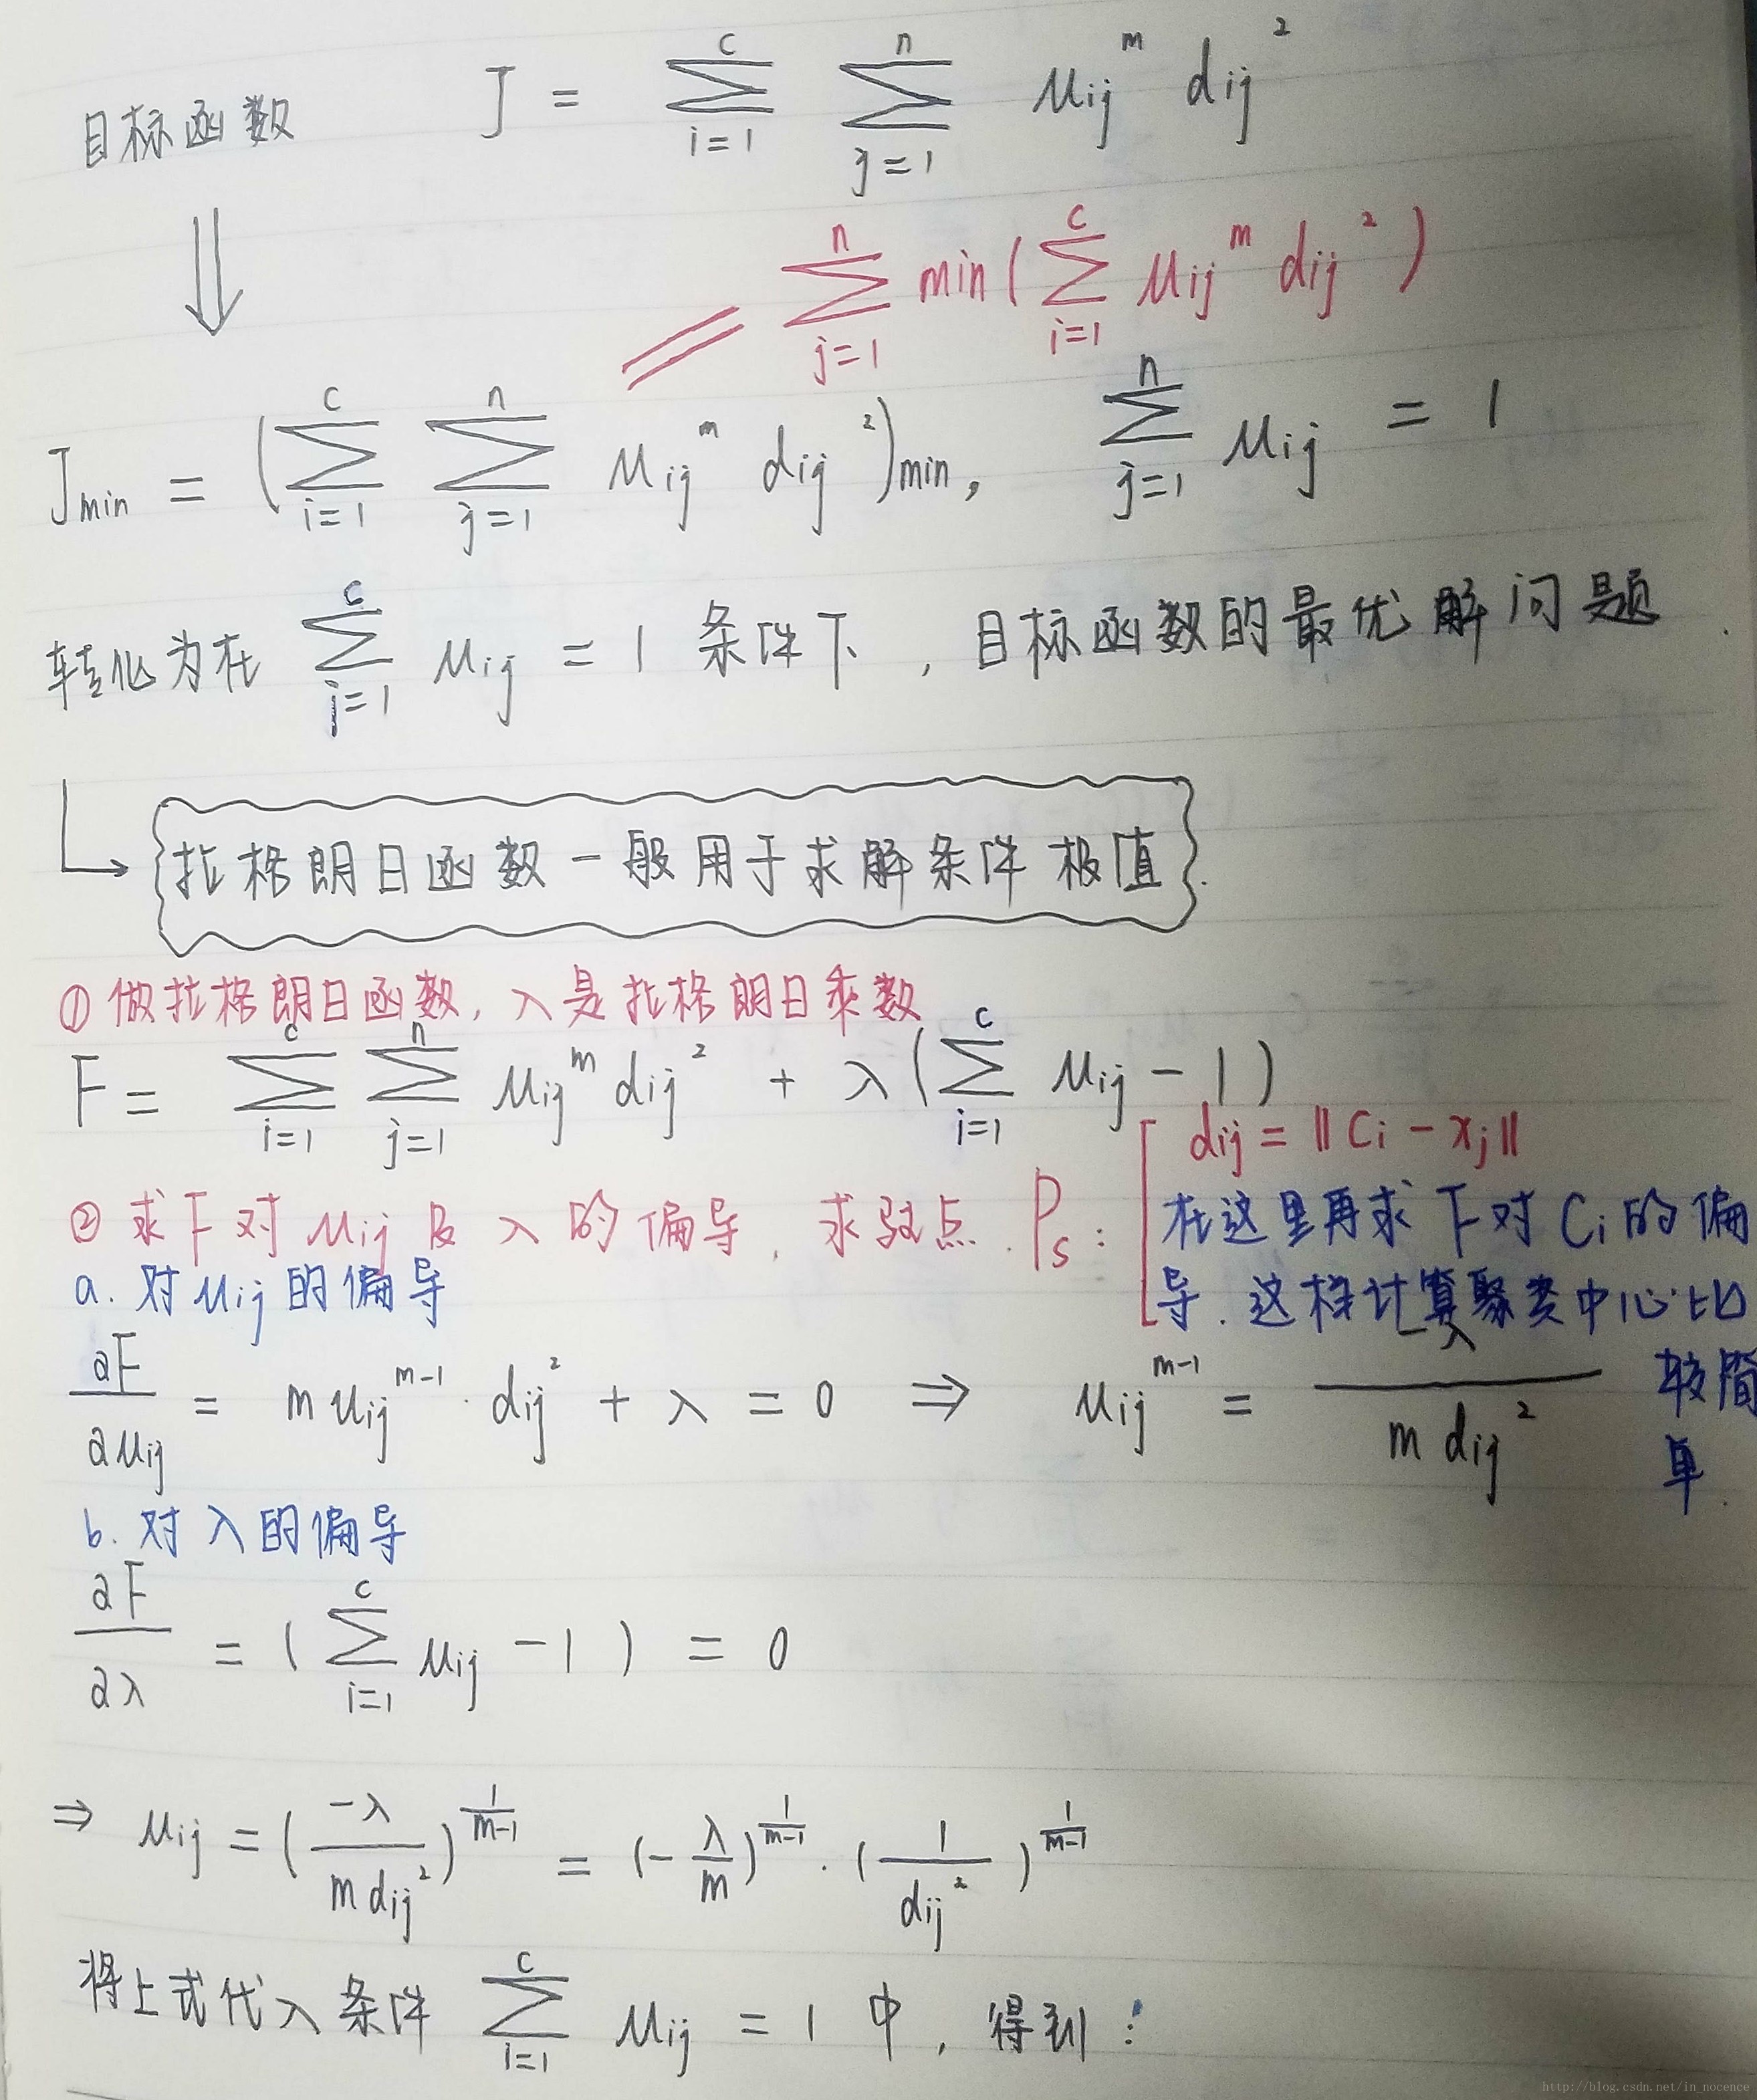 目标函数 J = ∑_{i=1}^{c} ∑_{j=1}^{n} μij^m dij^2
= ∑_{j=1}^{n} min(∑_{i=1}^{c} μij^m dij^2)
Jmin = (∑_{i=1}^{c} ∑_{j=1}^{n} μij^m dij^2)min, ∑_{j=1}^{n} μij = 1
转化为在 ∑_{j=1}^{c} μij = 1 条件下,目标函数的最优解问题.
拉格朗日函数一般用于求解条件极值.
① 做拉格朗日函数, λ是拉格朗日乘数
F = ∑_{i=1}^{c} ∑_{j=1}^{n} μij^m dij^2 + λ(∑_{i=1}^{c} μij - 1)
② 求F对μij及λ的偏导, 求驻点.
Ps: dij = ‖Ci - xj‖
在这里再求F对Ci的偏
导.这样计算聚类中心比
较简
单.
a. 对μij的偏导
∂F/∂μij = mμij^{m-1}·dij^2 + λ = 0 ⇒ μij^{m-1} = -λ/(m dij^2)
b. 对λ的偏导
∂F/∂λ = (∑_{i=1}^{c} μij - 1) = 0
⇒ μij = (-λ/(m dij^2))^{1/(m-1)} = (-λ/m)^{1/(m-1)}·(1/dij^2)^{1/(m-1)}
将上式代入条件 ∑_{i=1}^{c} μij = 1 中,得到:
http://blog.csdn.net/in_nocence